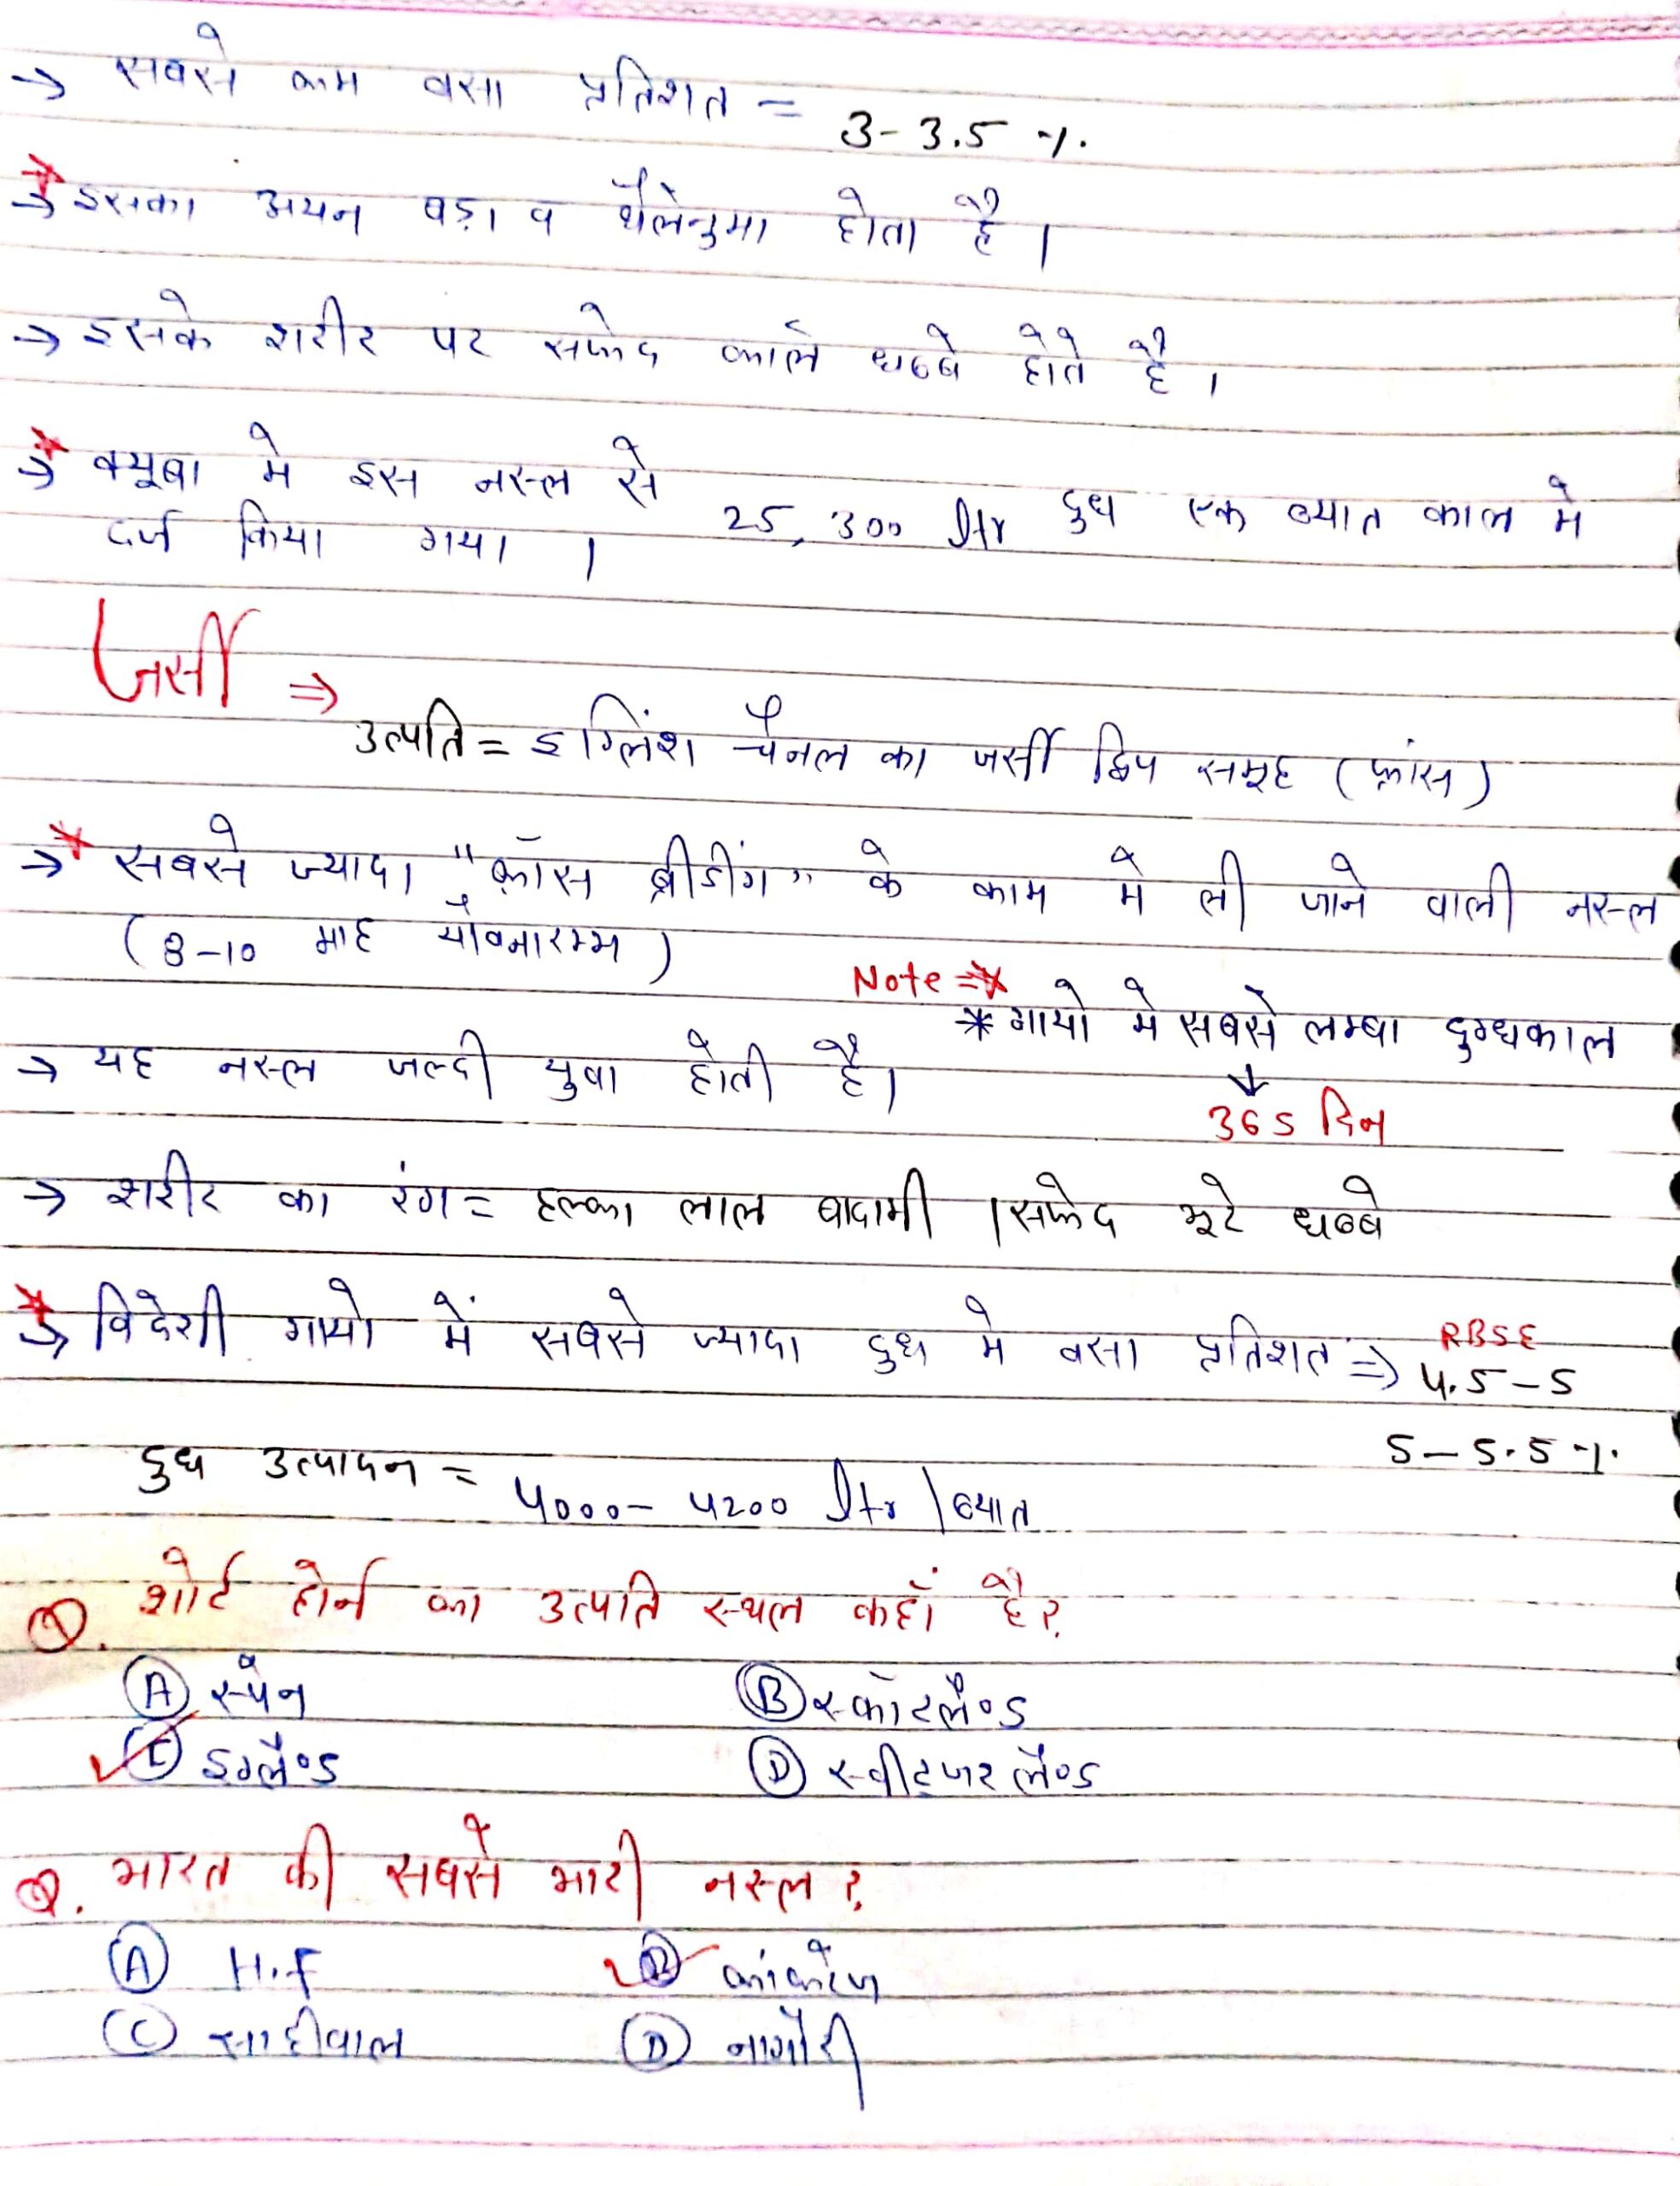 → सबसे कम वसा प्रतिशत = 3-3.5 %.
→ इसका अयन बड़ा व थैलेनुमा होता है।
→ इसके शरीर पर सफेद काले धब्बे होते है।
→ क्यूबा मे इस नस्ल से 25,300 ltr दुध एक ब्यात काल मे
दर्ज किया गया।
जर्सी ⇒
उत्पति = इग्लिंश चैनल का जर्सी द्विप समूह (फ्रांस)
→ सबसे ज्यादा "क्रॉस ब्रीडींग" के काम मे ली जाने वाली नस्ल
(8-10 माह यौवनारम्भ)
Note ⇒
* गायो मे सबसे लम्बा दुग्धकाल
↓
365 दिन
→ यह नस्ल जल्दी युवा होती है।
→ शरीर का रंग = हल्का लाल बादामी । सफेद भूरे धब्बे
→ विदेशी गायो में सबसे ज्यादा दुध मे वसा प्रतिशत ⇒ RBSE 4.5-5
5-5.5 %.
दुध उत्पादन = 4000-4200 ltr | ब्यात
Q. शोर्ट होर्न का उत्पति स्थल कहाँ है?
(A) स्पेन (B) स्कॉटलैण्ड
(C) इग्लैण्ड (D) स्वीटजरलैण्ड
Q. भारत की सबसे भारी नस्ल?
(A) H.F (B) कांकरेज
(C) साहीवाल (D) नागौरी